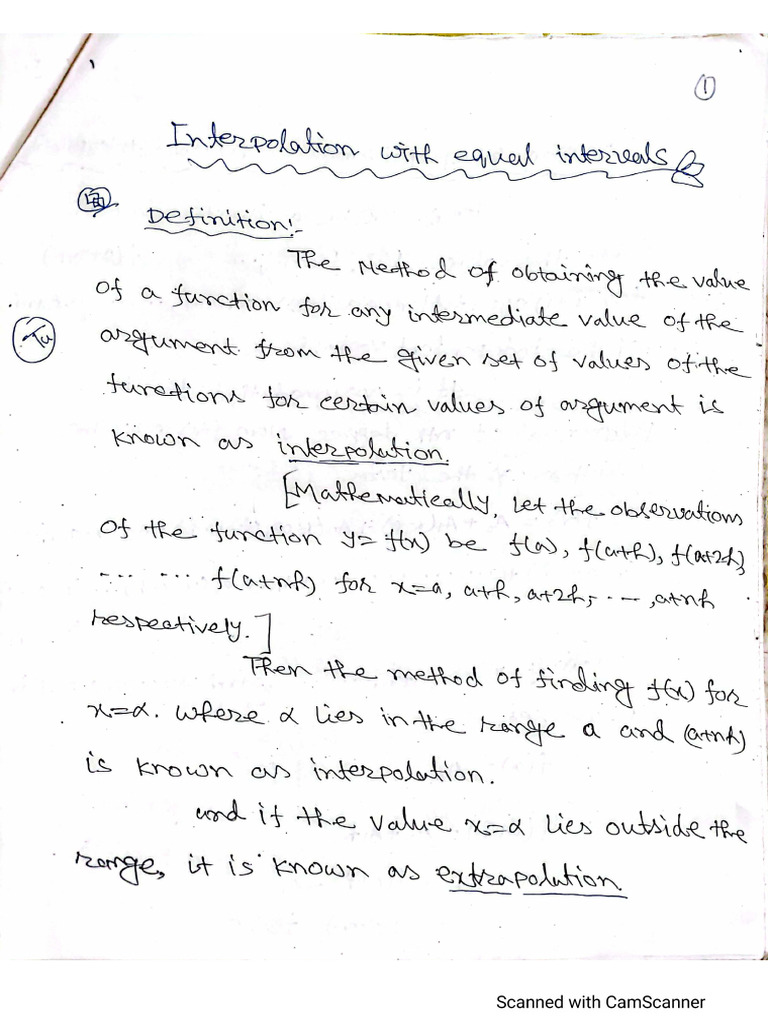 1
Interpolation with equal intervals
Definition:-
The Method of obtaining the value
of a function for any intermediate value of the
argument from the given set of values of the
functions for certain values of argument is
known as interpolation.
[Mathematically, Let the observations
of the function y= f(x) be f(a), f(a+h), f(a+2h),
... ... f(a+nh) for x=a, a+h, a+2h, ..., a+nh
respectively.]
Then the method of finding f(x) for
x=α. where α lies in the range a and (a+nh)
is known as interpolation.
and if the value x=α lies outside the
range, it is known as extrapolation
Scanned with CamScanner